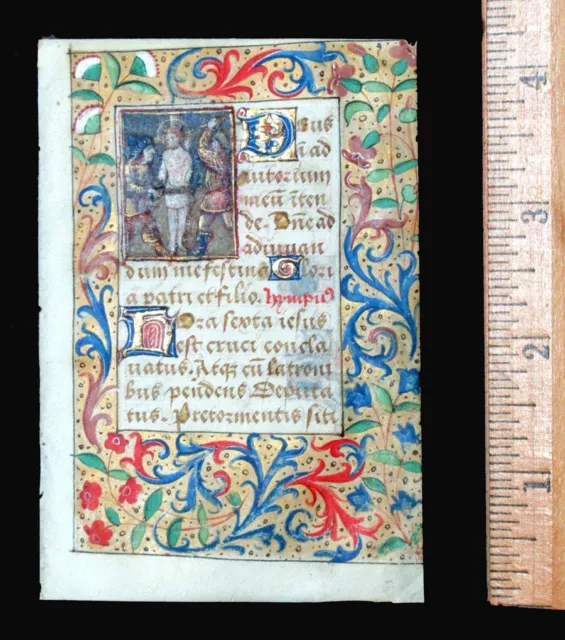 Deus
ī ad
iutorium
meū inten
de. Dñe ad
adiuuan
dum me festina Glori
a patri et filio. hympus
Hora sexta iesus
est cruci concla
uatus. Atqꝫ cū latroni
bus pendens deputa
tus. Pretormentis siti
4
3
2
1